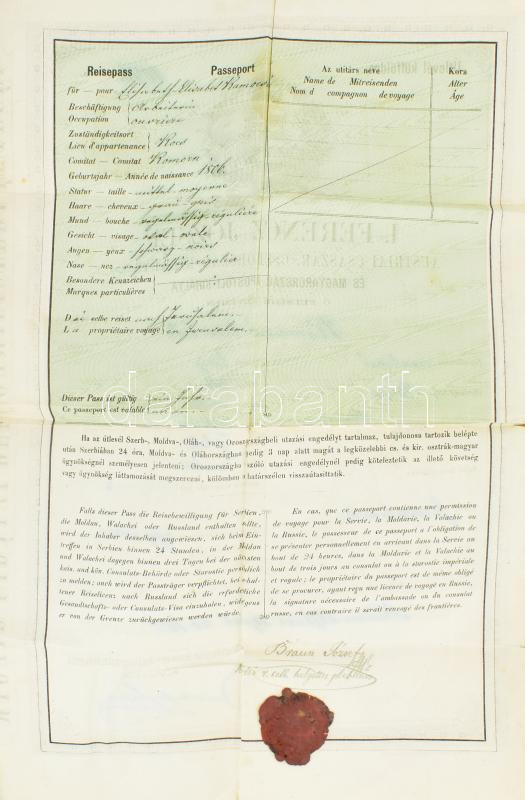 Reisepass Passeport
für — pour Elisabeth Elisabet
Beschäftigung
Occupation ouvrière
Zuständigkeitsort
Lieu d'appartenance Kocs
Comitat — Comitat Komorn
Geburtsjahr — Année de naissance 1806.
Statur — taille — mittel — moyenne
Haare — cheveux — grau — gris
Mund — bouche — regelmässig — regulière
Gesicht — visage — oval — ovale
Augen — yeux — schwarz — noirs
Nase — nez — regelmässig — régulier
Besondere Kennzeichen
Marques particulières
Die selbe reiset nach Jerusalem.
La propriétaire voyage en Jerusalem.
Dieser Pass ist gültig ein Jahr.
Ce passeport est valable un an.
Az utitárs neve
Name des Mitreisenden
Nom du compagnon de voyage
Kora
Alter
Âge
Ha az útlevél Szerb-, Moldva-, Oláh-, vagy Oroszországbeli utazási engedélyt tartalmaz, tulajdonosa tartozik belépte
után Szerbiában 24 óra, Moldva- és Oláhországban pedig 3 nap alatt magát a legközelebbi cs. és kir. osztrák-magyar
ügynökségnél személyesen jelenteni; Oroszországba szóló utazási engedélynél pedig köteleztetik az illető követség
vagy ügynökség láttamozását megszerezni, különben a határszélen visszautasíttatik.
Falls dieser Pass die Reisebewilligung für Serbien,
die Moldau, Walachei oder Russland enthalten sollte,
wird der Inhaber desselben angewiesen, sich beim Ein-
treffen in Serbien binnen 24 Stunden, in der Moldau
und Walachei dagegen binnen drei Tagen bei der nächsten
kais. und kön. Consulats-Behörde oder Starostie persönlich
zu melden; auch wird der Passträger verpflichtet, bei erhal-
tener Reiselicenz nach Russland sich die erforderliche
Gesandtschafts- oder Consulats-Visa einzuholen, widrigens
er von der Grenze zurückgewiesen werden würde.
En cas, que ce passeport contient une permission
de voyage pour la Servie, la Moldavie, la Valachie ou
la Russie, le possesseur de ce passeport a l'obligation de
se présenter personnellement en arrivant dans la Servie au
bout de 24 heures, dans la Moldavie et la Valachie au
bout de trois jours au consulat ou à la starostie impériale
et royale; le propriétaire du passeport est de même obligé
de se procurer, ayant reçu une licence de voyage en Russie,
la signature nécessaire de l'ambassade ou du consulat
russe, en cas contraire il serait renvoyé des frontières.
Braun József
darabanth